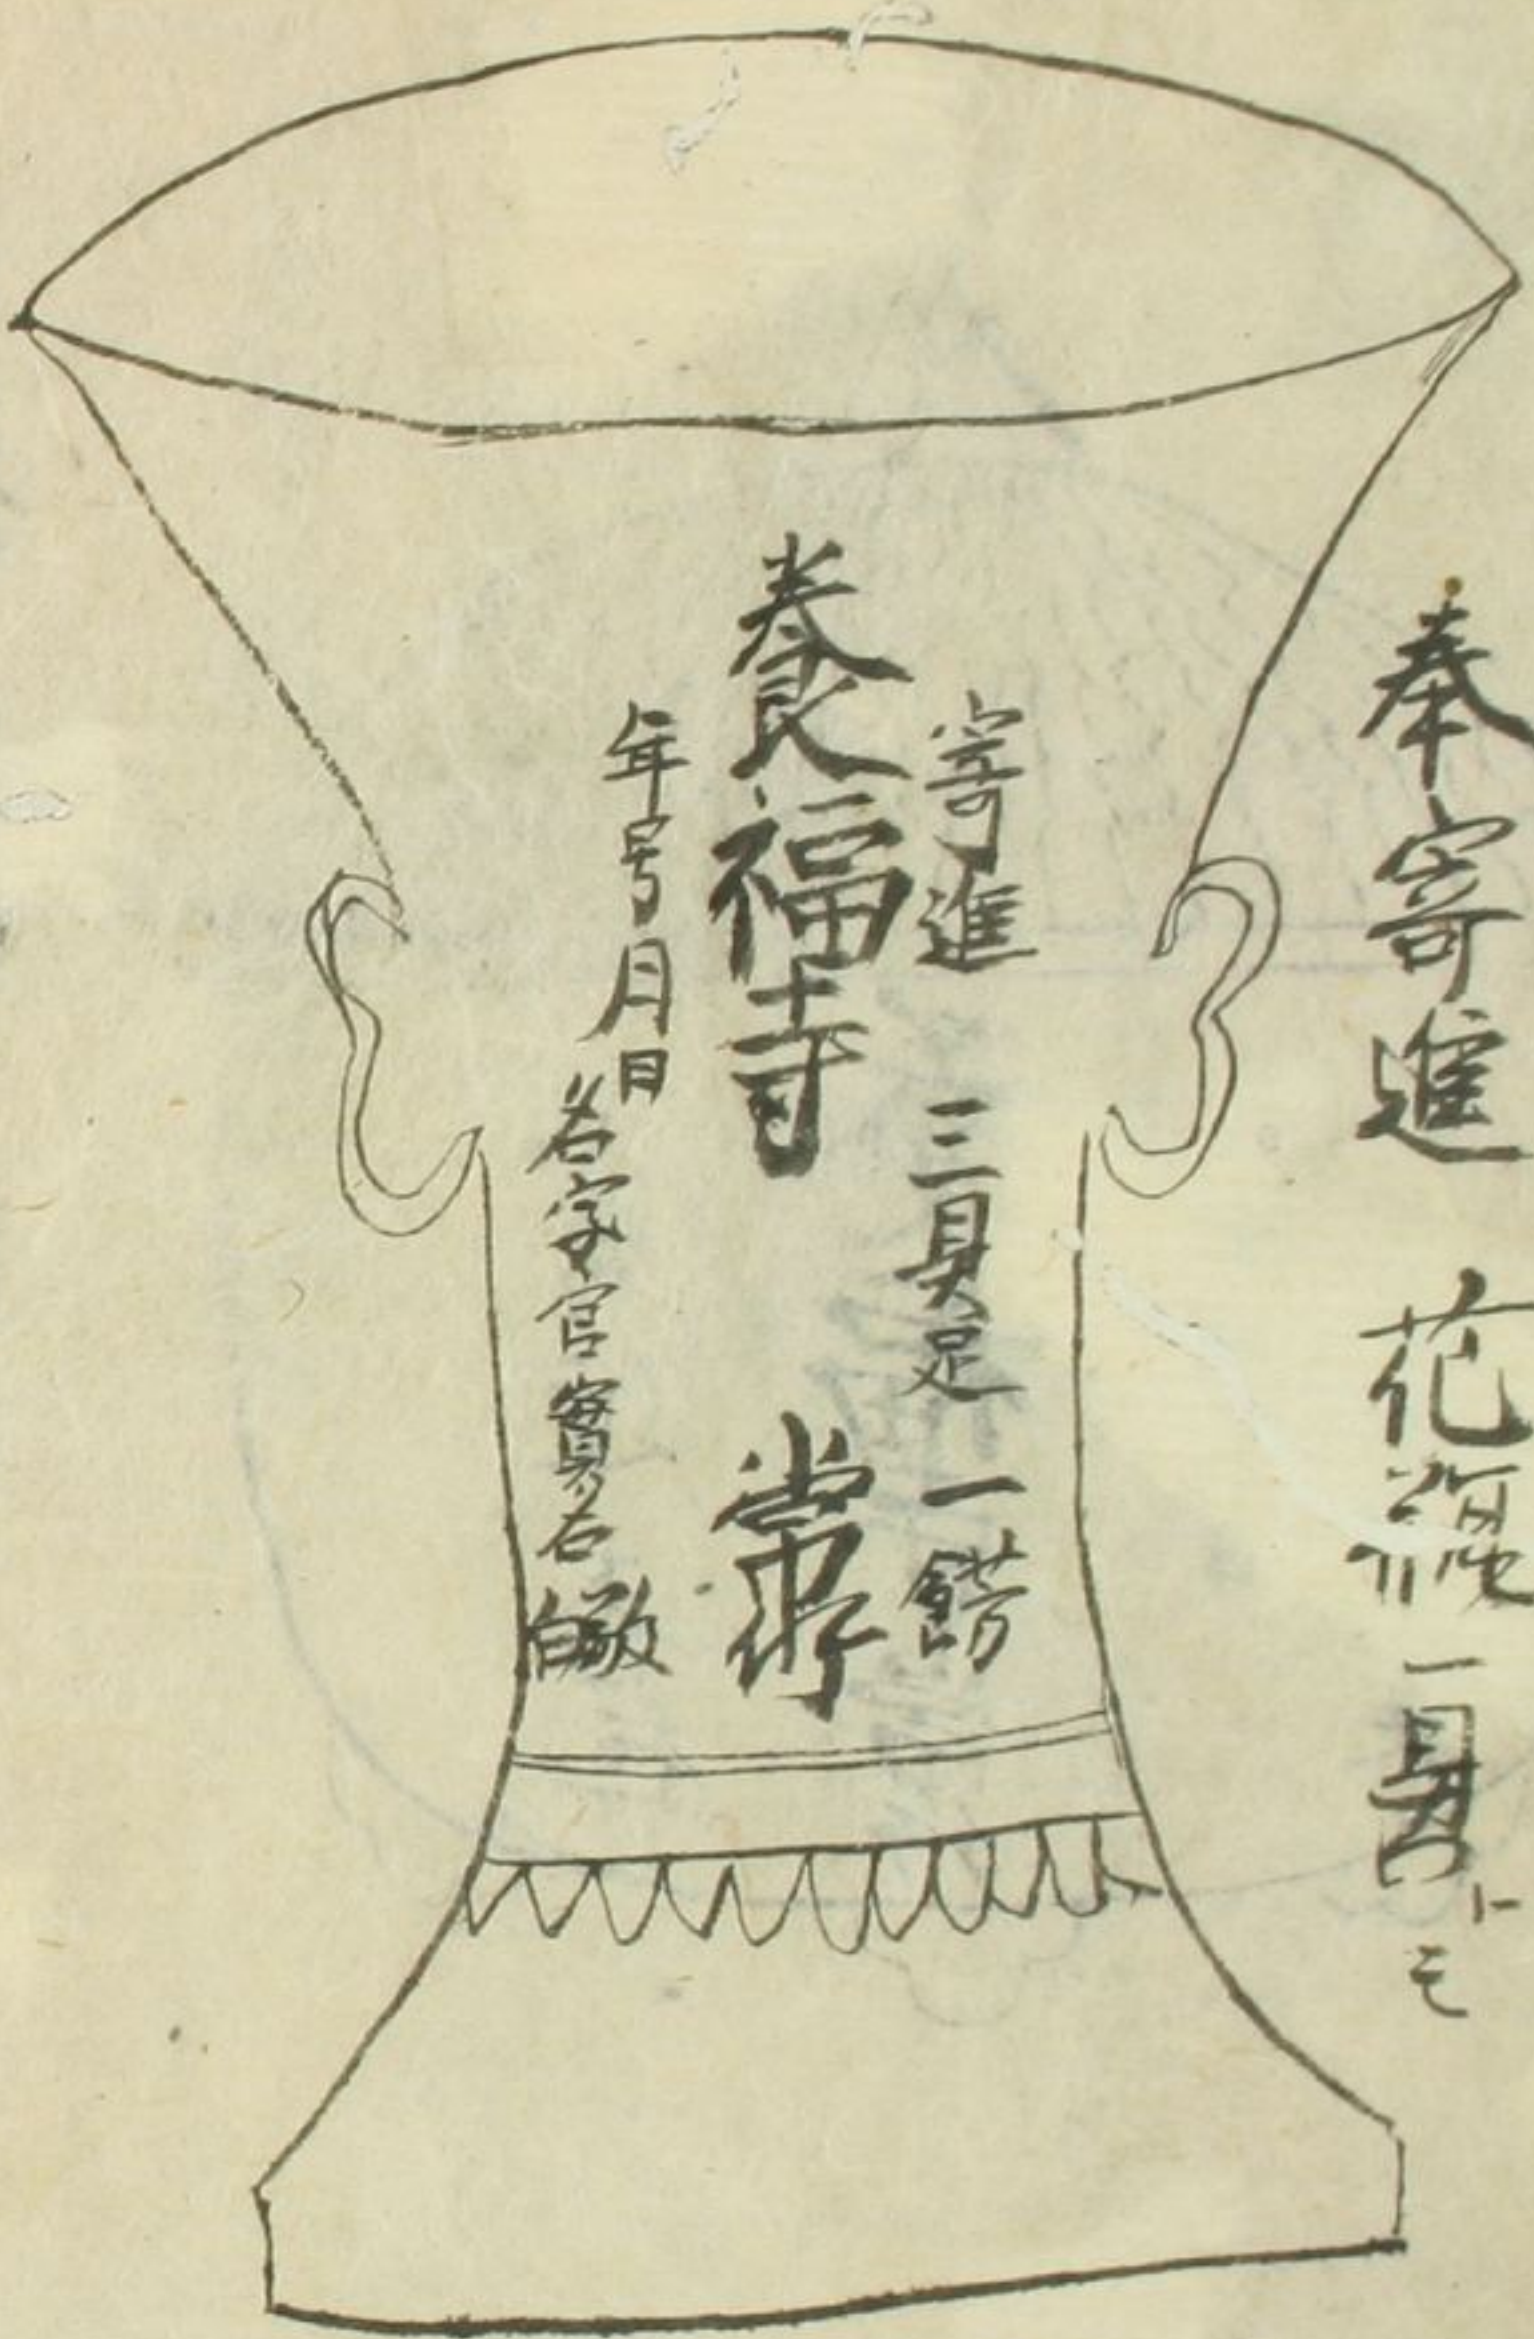 奉寄進 花瓶一具 トモ
寄進 三具足 一餝
養福寺 常什
年号月日
名字官實名 敬白